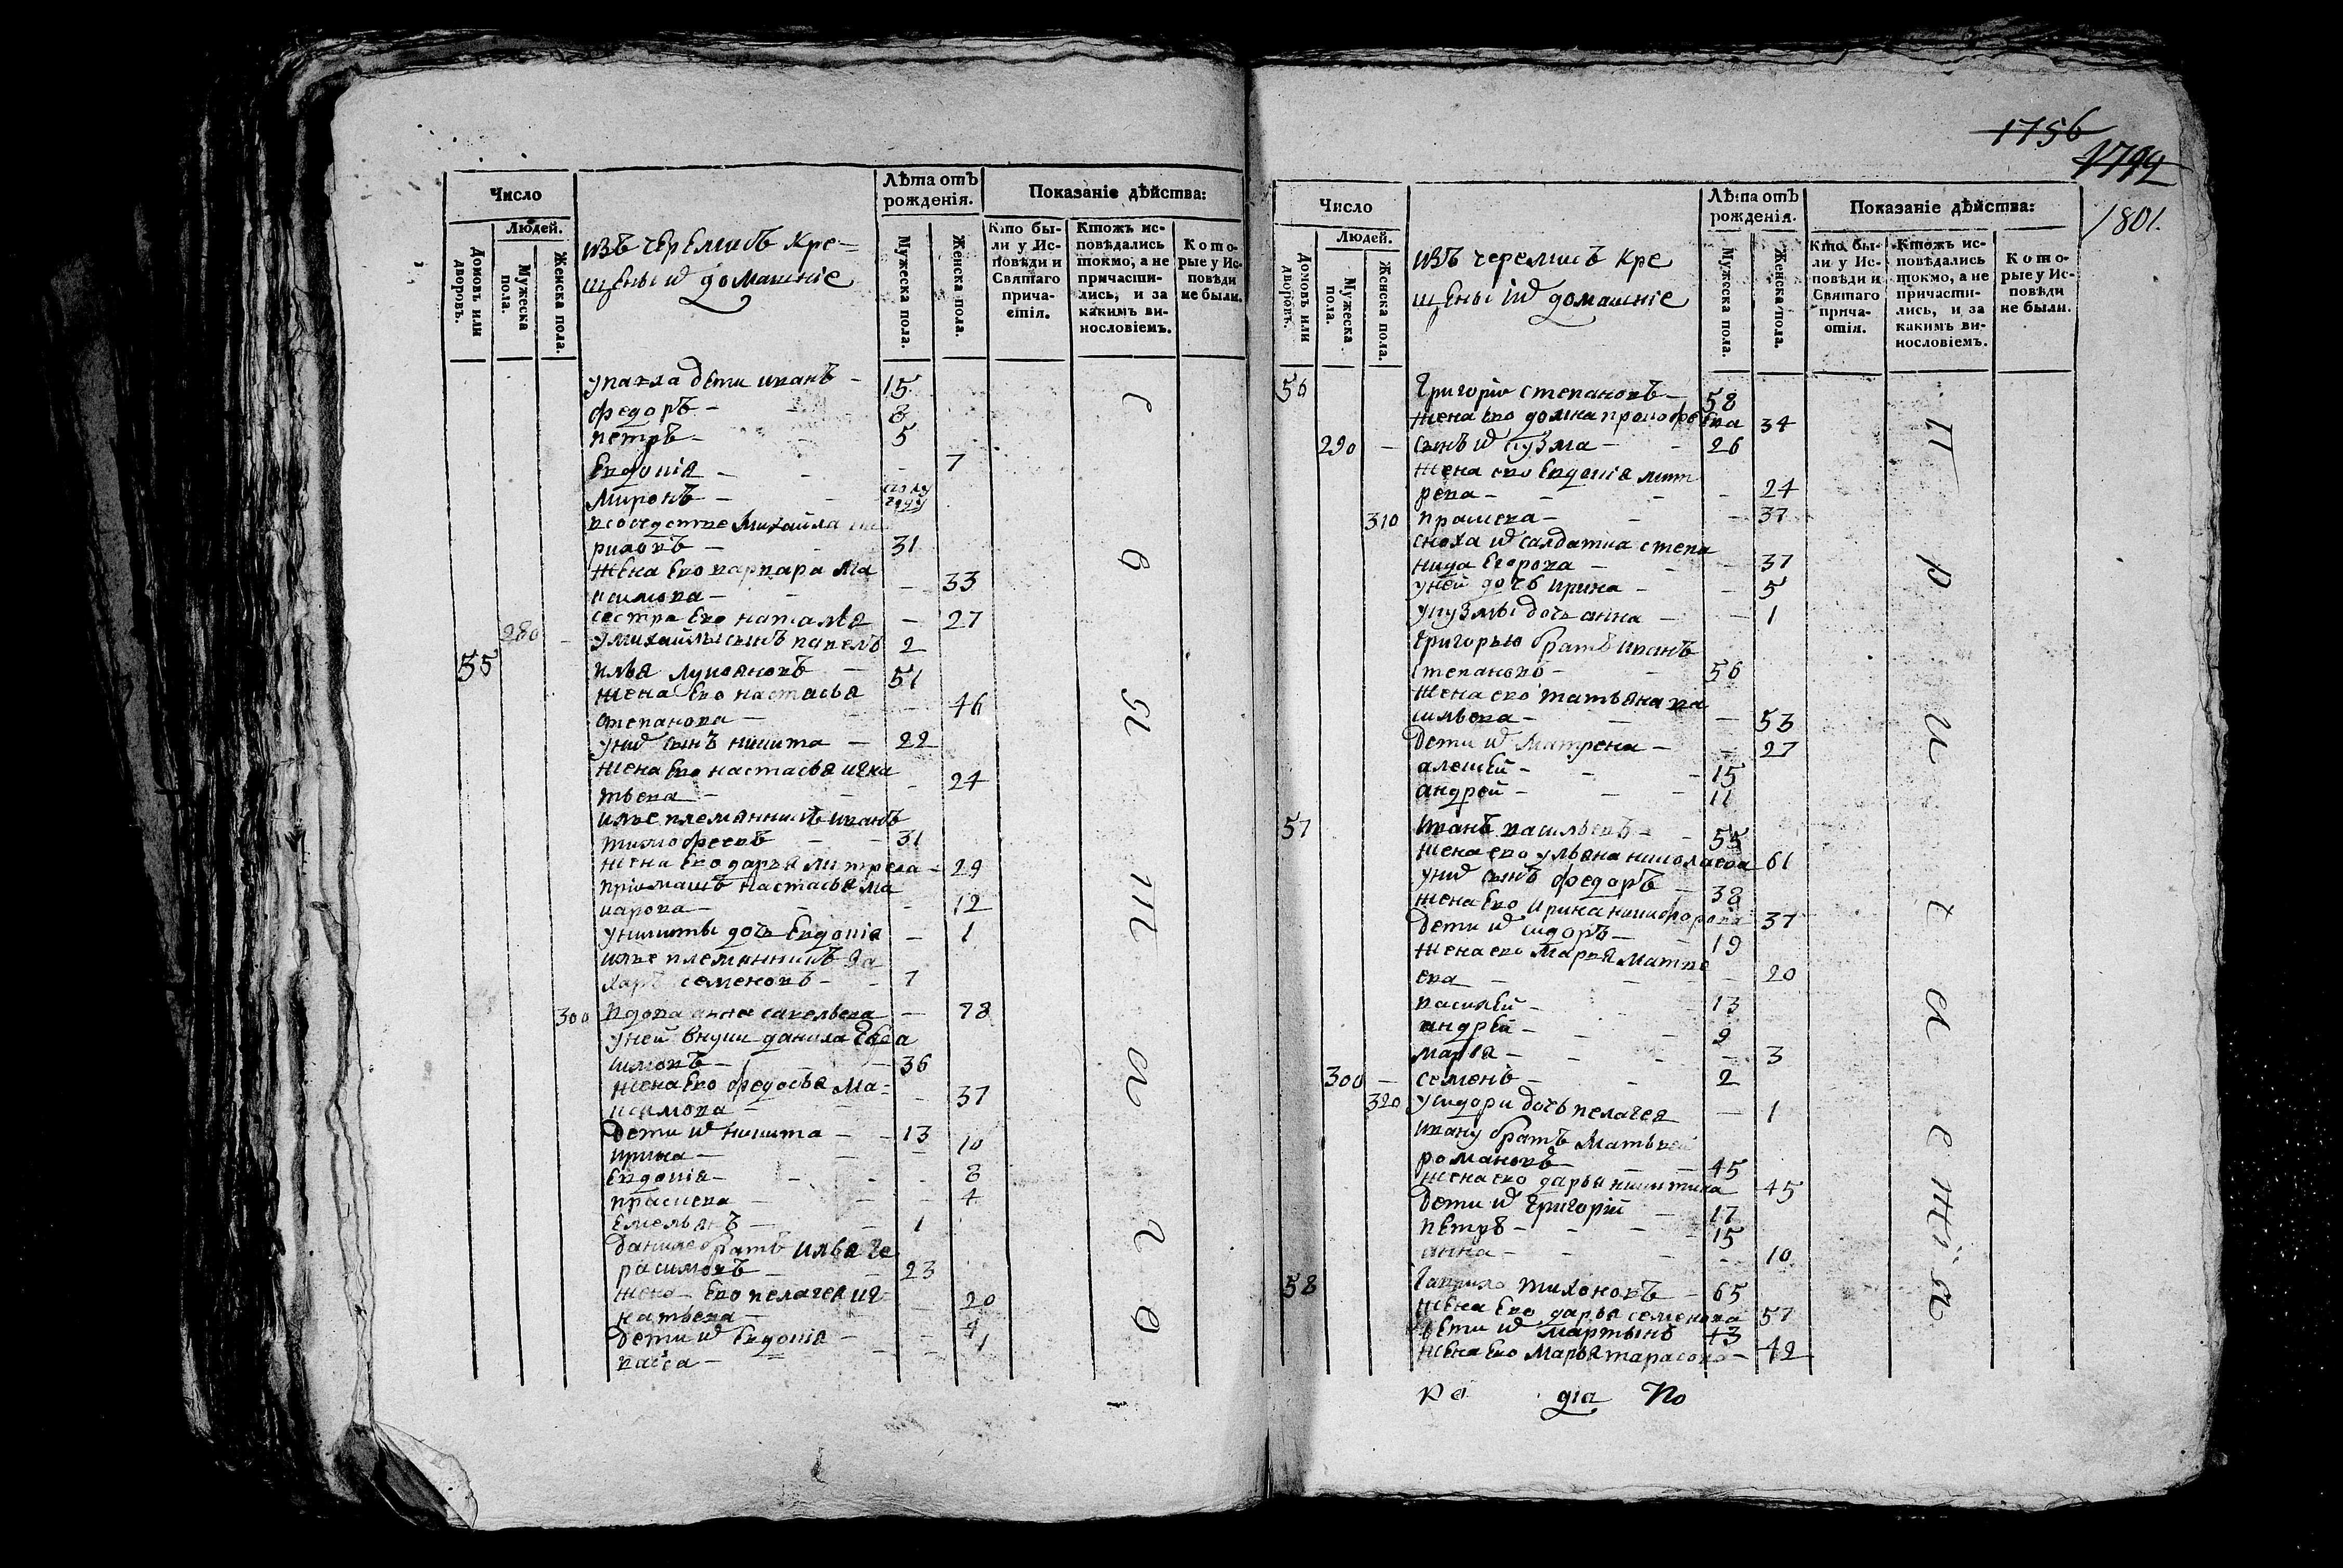 1756
1801.
Число
Людей.
Домовъ или дворовъ.
Мужеска пола.
Женска пола.
изъ черемисъ кре=
щены их домашніе
Лѣта отъ рожденія.
Мужеска пола.
Женска пола.
Показаніе дѣйства:
Кто бы-
ли у Ис-
повѣди и
Святаго
прича-
стія.
Ктожъ ис-
повѣдались
токмо, а не
причасти-
лись, и за
какимъ ви-
нословіемъ.
Кото-
рые у Ис-
повѣди
не были.
дети иванъ - 15
федоръ - 8
петръ - 5
Евдокіа - - 7
Миронъ - - году
Михайла
31
жена Ево варвара Ма
ксимова - - 33
сестра Ево наталья - 27
280 - у михайлы сынъ павелъ 2
55 илья лукоановъ - 51
жена Ево настасья
степанова - - 46
у них сынъ никита - 22
жена Ево настасья игна
тьева - - 24
илье племянникъ иванъ
тимофеевъ - - 31
жена Ево дарья митрева - 29
настасья ма
карова - - 12
у никиты дочь Евдокіа - 1
илье племянникъ За
харъ семеновъ - - 7
300 вдова анна савельева - 78
у ней внуки данила Гера
симовъ - - 36
жена Ево федосья Ма=
ксимова - - 37
дети их никита - - 13
ирина - - 10
Евдокіа - - - 8
прасковa - - 4
Емельянъ - - 1
даниле братъ илья Ге
расимовъ - - 23
жена Ево пелагея иг
натьева - - 20
дети их Евдокіа - - 4
васса - - - 1
с в я т а г о
Число
Людей.
Домовъ или дворовъ.
Мужеска пола.
Женска пола.
изъ черемисъ кре
щены их домашніе
Лѣта отъ рожденія.
Мужеска пола.
Женска пола.
Показаніе дѣйства:
Кто бы-
ли у Ис-
повѣди и
Святаго
прича-
стія.
Ктожъ ис-
повѣдались
токмо, а не
причасти-
лись, и за
какимъ ви-
нословіемъ.
Кото-
рые у Ис-
повѣди
не были.
56 Григорій степановъ - 58
жена Ево домна прокофьева 34
290 - сынъ их кузма - - 26
жена ево Евдокіа мит
рева - - - 24
310 прасковa - - - 37
сноха их салдатка степа
нида Егорова - - 37
у ней дочь ирина - - 5
у кузмы дочь анна - - 1
Григорью братъ иванъ
степановъ - - 56
жена ево татьяна ва
сильева - - - 53
дети их матрена - - 27
алексей - - - 15
андрей - - - 11
57 иванъ васильевъ - - 55
жена ево ульяна николаева 61
у них сынъ федоръ - 38
жена Ево ирина никифорова 37
дети их сидоръ - - 19
жена ево марья матве
ева - - - 20
василей - - 13
андрей - - - 9
марья - - - - 3
300 - семенъ - - 2
320 у сидора дочь пелагея - 1
ивану братъ Матвей
романовъ - - - 45
жена ево дарья никитина 45
дети их Григорій - 17
петръ - - - - 15
анна - - - - 10
58 Гаврила тихоновъ - 65
жена Ево дарья семенова 57
дети их мартынъ 43
жена Ево марья тарасова - 42
п р и ч а с т і я
дiа По